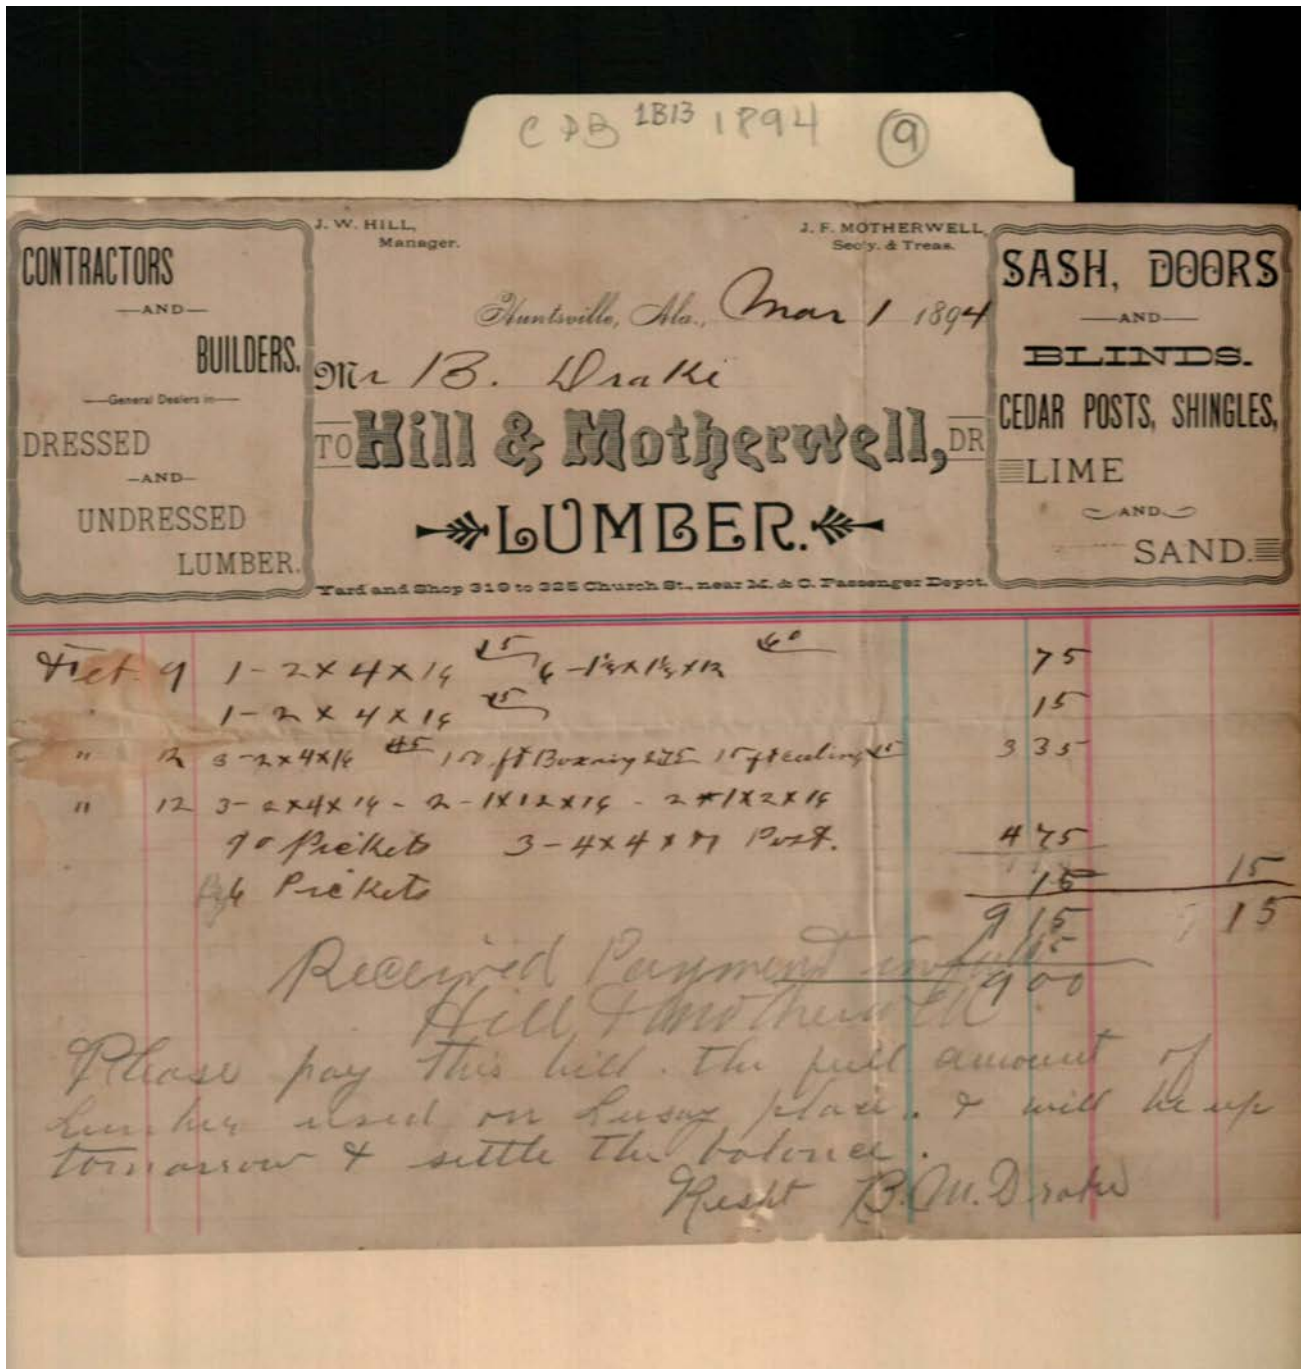 CDB 1B13 1894 9
J. W. HILL,
Manager.
J. F. MOTHERWELL,
Sec'y. & Treas.
CONTRACTORS
—AND—
BUILDERS.
General Dealers in
DRESSED
—AND—
UNDRESSED
LUMBER.
Huntsville, Ala., Mar 1 1894
Mr B. Drake
TO Hill & Motherwell, DR
LUMBER.
Yard and Shop 319 to 325 Church St., near M. & C. Passenger Depot.
SASH, DOORS
—AND—
BLINDS.
CEDAR POSTS, SHINGLES,
LIME
AND
SAND.
9 1 - 2 x 4 x 16 15 6 - 1½ x 1½ x 12 60 75
1 - 2 x 4 x 16 15 15
" 12 3 - 2 x 4 x 16 45 150 ft Boxing 15 ft ceiling 3 35
" 12 3 - 2 x 4 x 16 - 2 - 1 x 12 x 16 - 2 - 1 x 2 x 16
90 Pickets 3 - 4 x 4 x 7 Post. 4 75
6 Pickets 15 15
9 15 9 15
15
Received Payment in full 9 00
Hill & Motherwell
Please pay this bill. the full amount of
Lumber used on place. I will be up
tomorrow & settle the balance.
Respt B. M. Drake